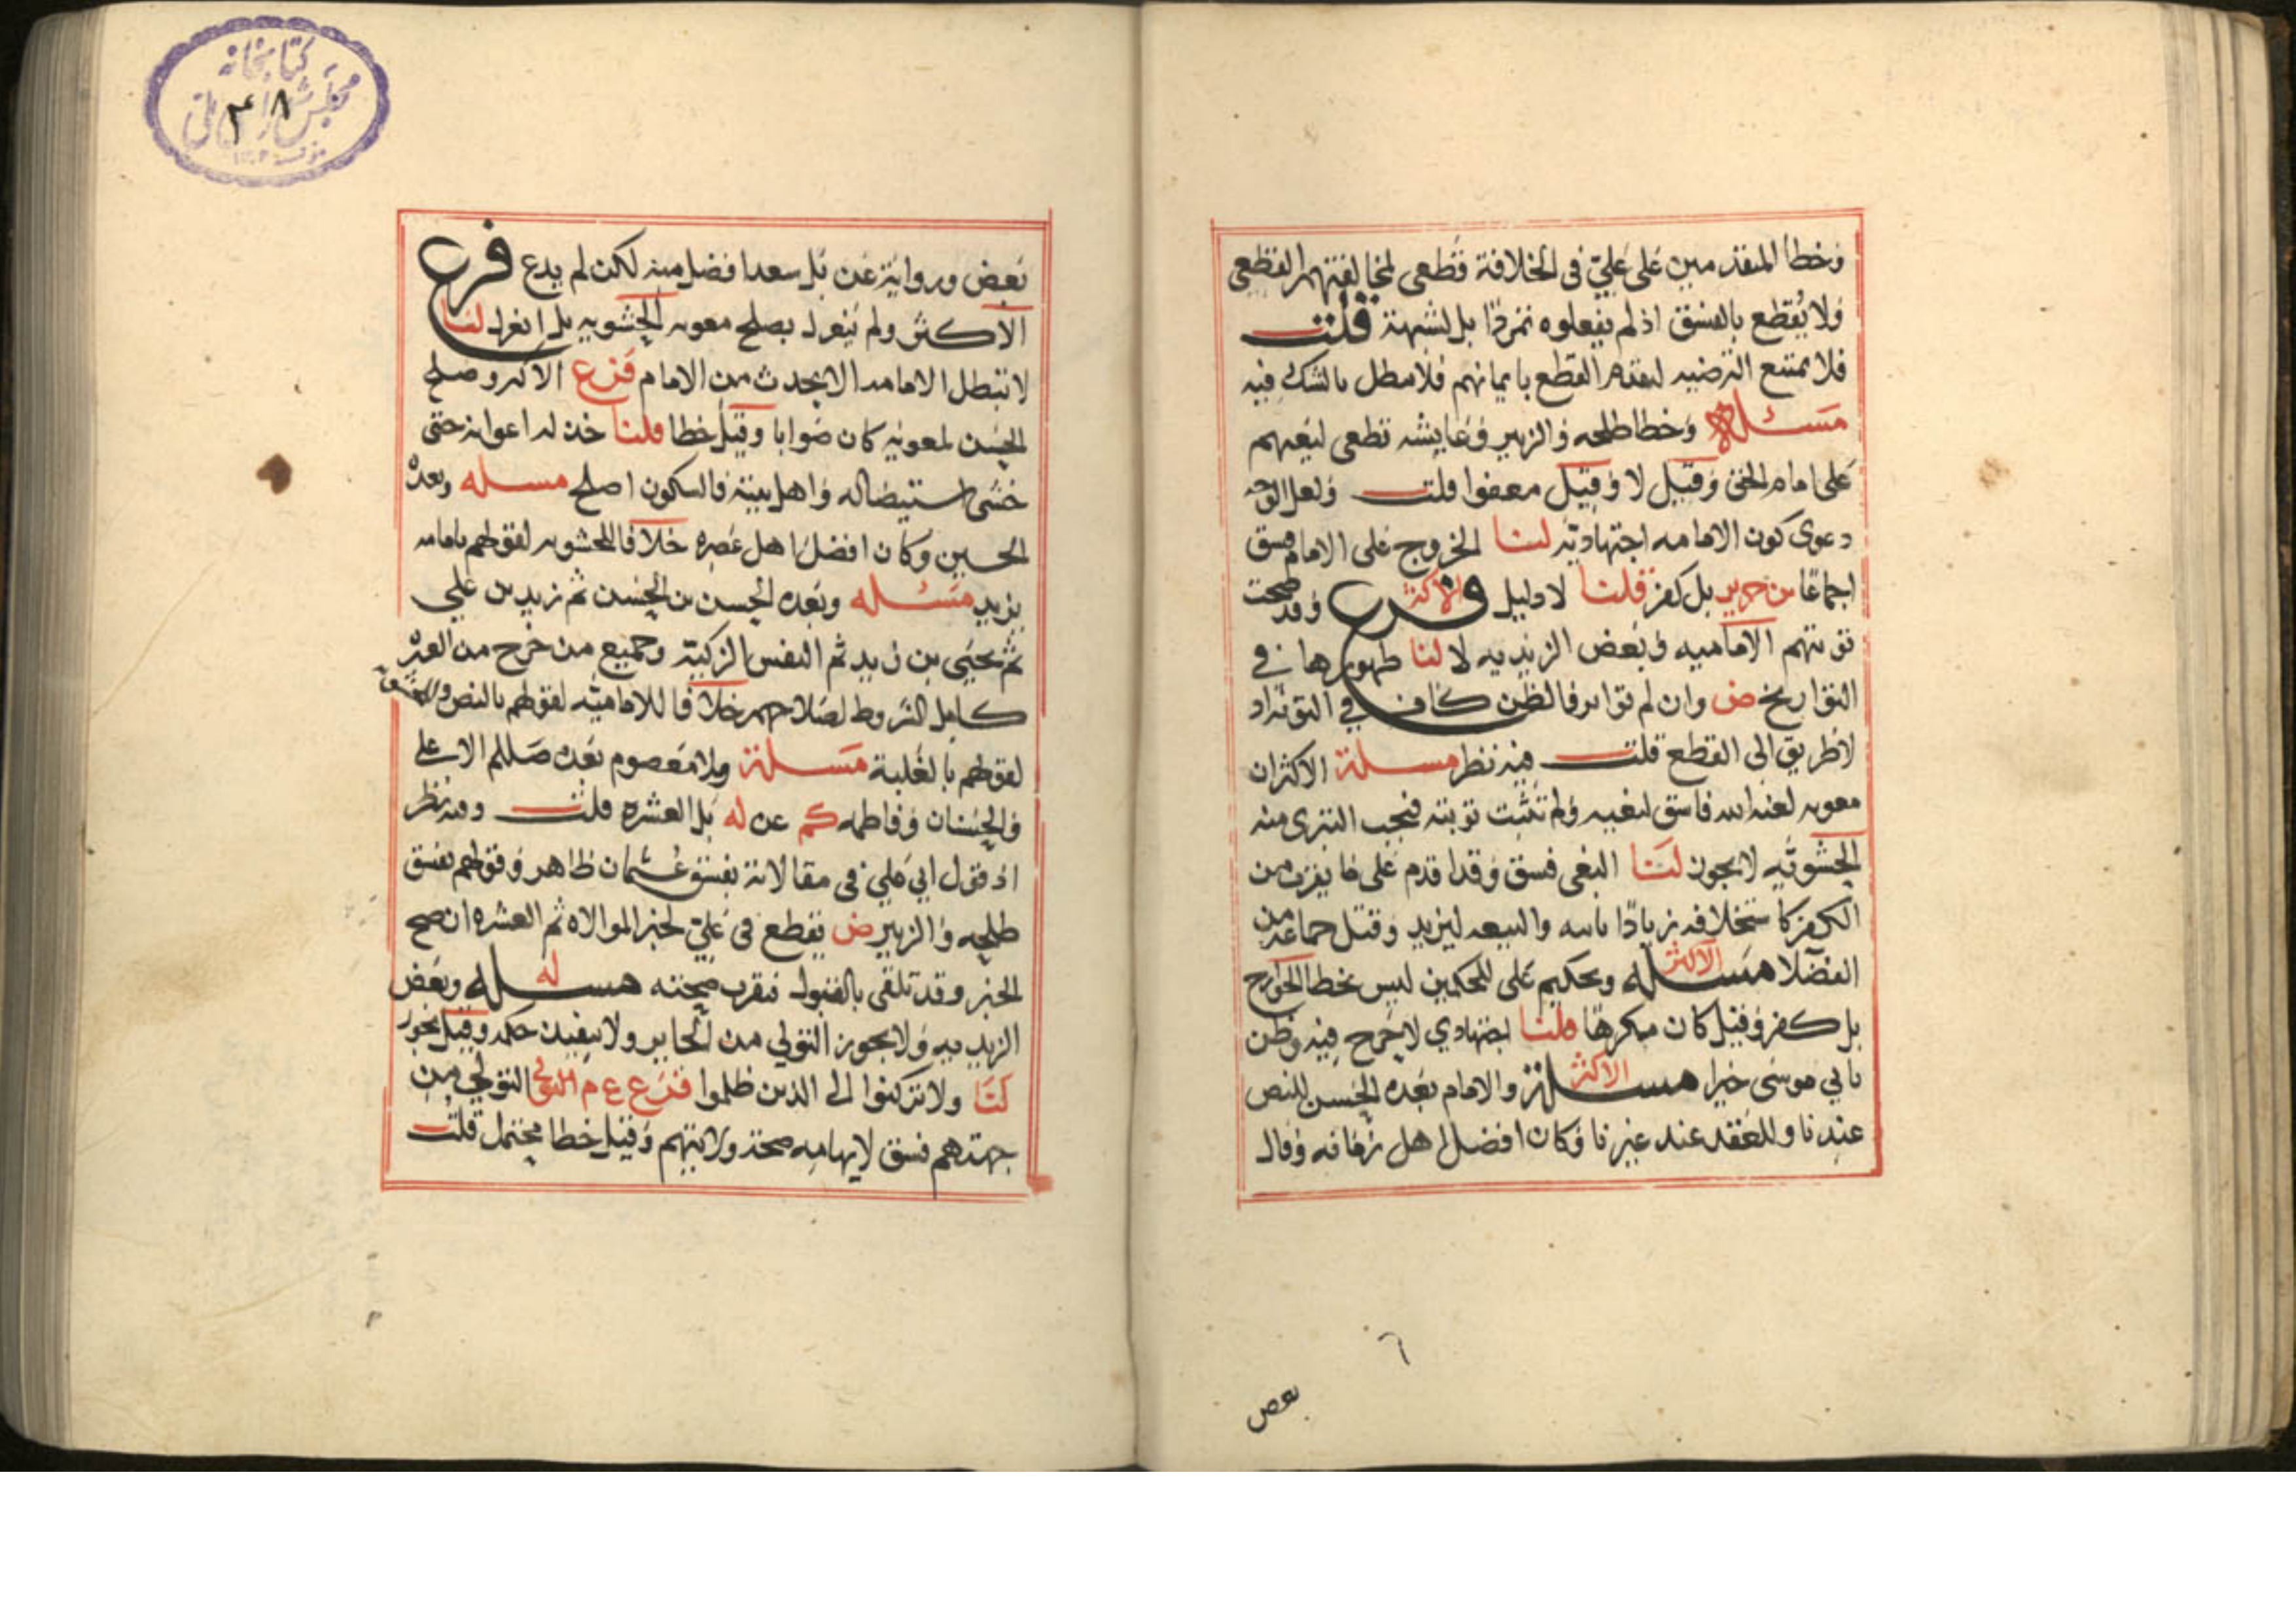 وخطأ المتقدمين على علي في الخلافة قطعي لمخالفتهم القطعي
ولا يقطع بالفسق اذ لم يفعلوه تمردا بل لشبهة قلت
فلا يمتنع الترضيه لتقدم القطع بايمانهم فلا يبطل بالشك فيه
مسئلة وخطا طلحه والزبير وعايشه قطعي لبغيهم
على امام الحق وقيل لا وقيل معفوا قلت ولعل الوجه
دعوى كون الامامه اجتهادية لنا الخروج على الامام فسق
اجماعا بل كفر قلنا لا دليل فرع الاكثر وقد صحت
توبتهم الاماميه وبعض الزيديه لا لنا ظهورها في
التواريخ ض وان لم تواتر فالظن كاف في التوبة اذ
لا طريق الى القطع قلت فيه نظر مسئلة الاكثر ان
معويه لعنه الله فاسق لبغيه ولم تثبت توبته فيجب التبري منه
الحشويه لا يجوز لنا البغي فسق وقد اقدم على ما يقرب من
الكفر كاستخلافه زيادا والبيعه ليزيد وقتل جماعة من
الفضلا مسئله الاكثر وتحكيم علي للحكمين ليس بخطا الخوارج
بل كفر وقيل كان مكرها قلنا اجتهادي لا حرج فيه وظن
بابي موسى خيرا مسئلة الاكثر والامام بعده الحسن للنص
عندنا وللعقد عند غيرنا وكان افضل اهل زمانه وقال
بعض
بعض ورواية عن بل سعد افضل منه لكن لم يدع فرع
الاكثر ولم ينعزل بصلح معويه الحشويه بل انعزل لنا
لا تبطل الامامه الا بحدث من الامام فرع الاكثر وصلح
الحسن لمعويه كان صوابا وقيل خطا قلنا خذله اعوانه حتى
خشي استيصاله واهل بيته فالسكون اصلح مسئله وبعده
الحسين وكان افضل اهل عصره خلافا للحشويه لقولهم بامامه
يزيد مسئله وبعده الحسن بن الحسن ثم زيد بن علي
ثم يحيى بن زيد ثم النفس الزكية وجميع من خرج من العتره
كامل الشروط لصلاحهم خلافا للاماميه لقولهم بالنص
لقولهم بالغلبة مسئلة ولا معصوم بعده صللم الا علي
والحسنان وفاطمه كم عن له بل العشره قلت وفيه نظر
اذ قول ابي علي في مقالاته بفسق عثمان ظاهر وقولهم بفسق
طلحه والزبير ض يقطع في علي لخبر الموالاه ثم العشره ان صح
الخبر وقد تلقي بالقبول فيقرب صحته مسئله له وبعض
الزيديه ولا يجوز التولي من الجاير ولا ينفذ حكمه وقيل يجوز
لنا ولا تركنوا الى الذين ظلموا فرع ع م التولي من
جهتهم فسق لايهامه صحة ولايتهم وقيل خطا محتمل قلت
كتابخانه
مجلس شورای ملی
٤٨